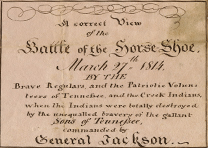 A correct View
of the
Battle of the Horse Shoe,
March 27th 1814.
BY THE
Brave Regulars, and the Patriotic Volun
teers of Tennessee, and the Creek Indians,
when the Indians were totally destroyed
by the unequalled bravery of the gallant
Sons of Tennessee,
commanded by
General Jackson.